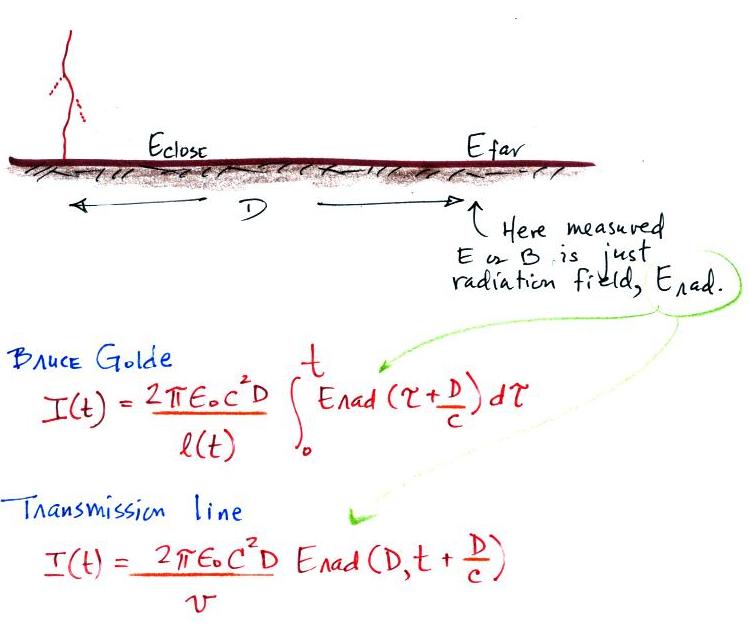 Eclose
Efar
D
Here measured
E or B is just
radiation field, Erad.
Bruce Golde
I(t) = 2πε₀c²D / l(t) ∫₀ᵗ Erad (τ + D/c) dτ
Transmission line
I(t) = 2πε₀c²D / v Erad (D, t + D/c)